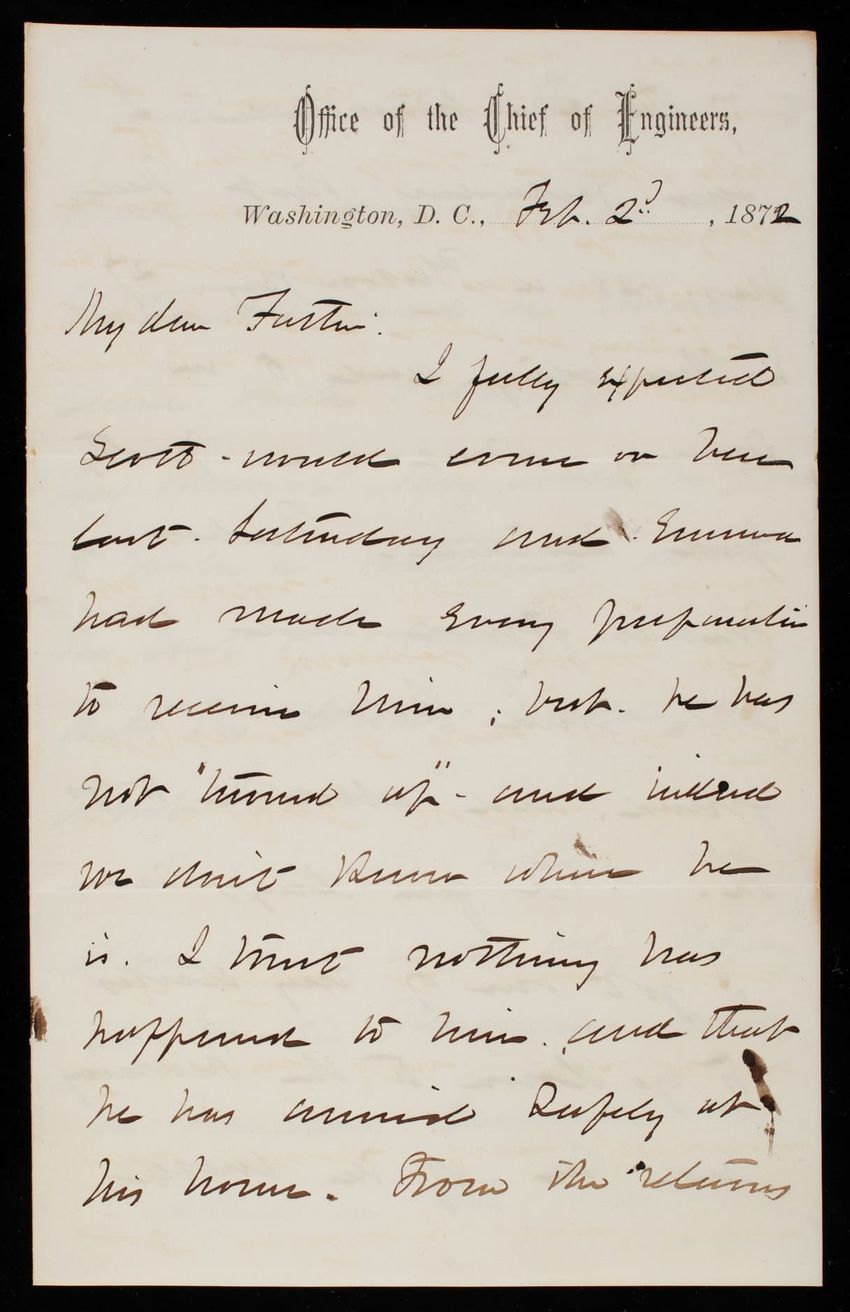 Office of the Chief of Engineers,
Washington, D. C., Feb. 2d, 1872
My dear
I fully expected
Scott - would come on here
last. Saturday and Emma
had made every preparation
to receive him; but. he has
not "turned up" - and indeed
we don't know where he
is. I trust nothing has
happened to him. and that
he has arrived safely at
his home. From the returns